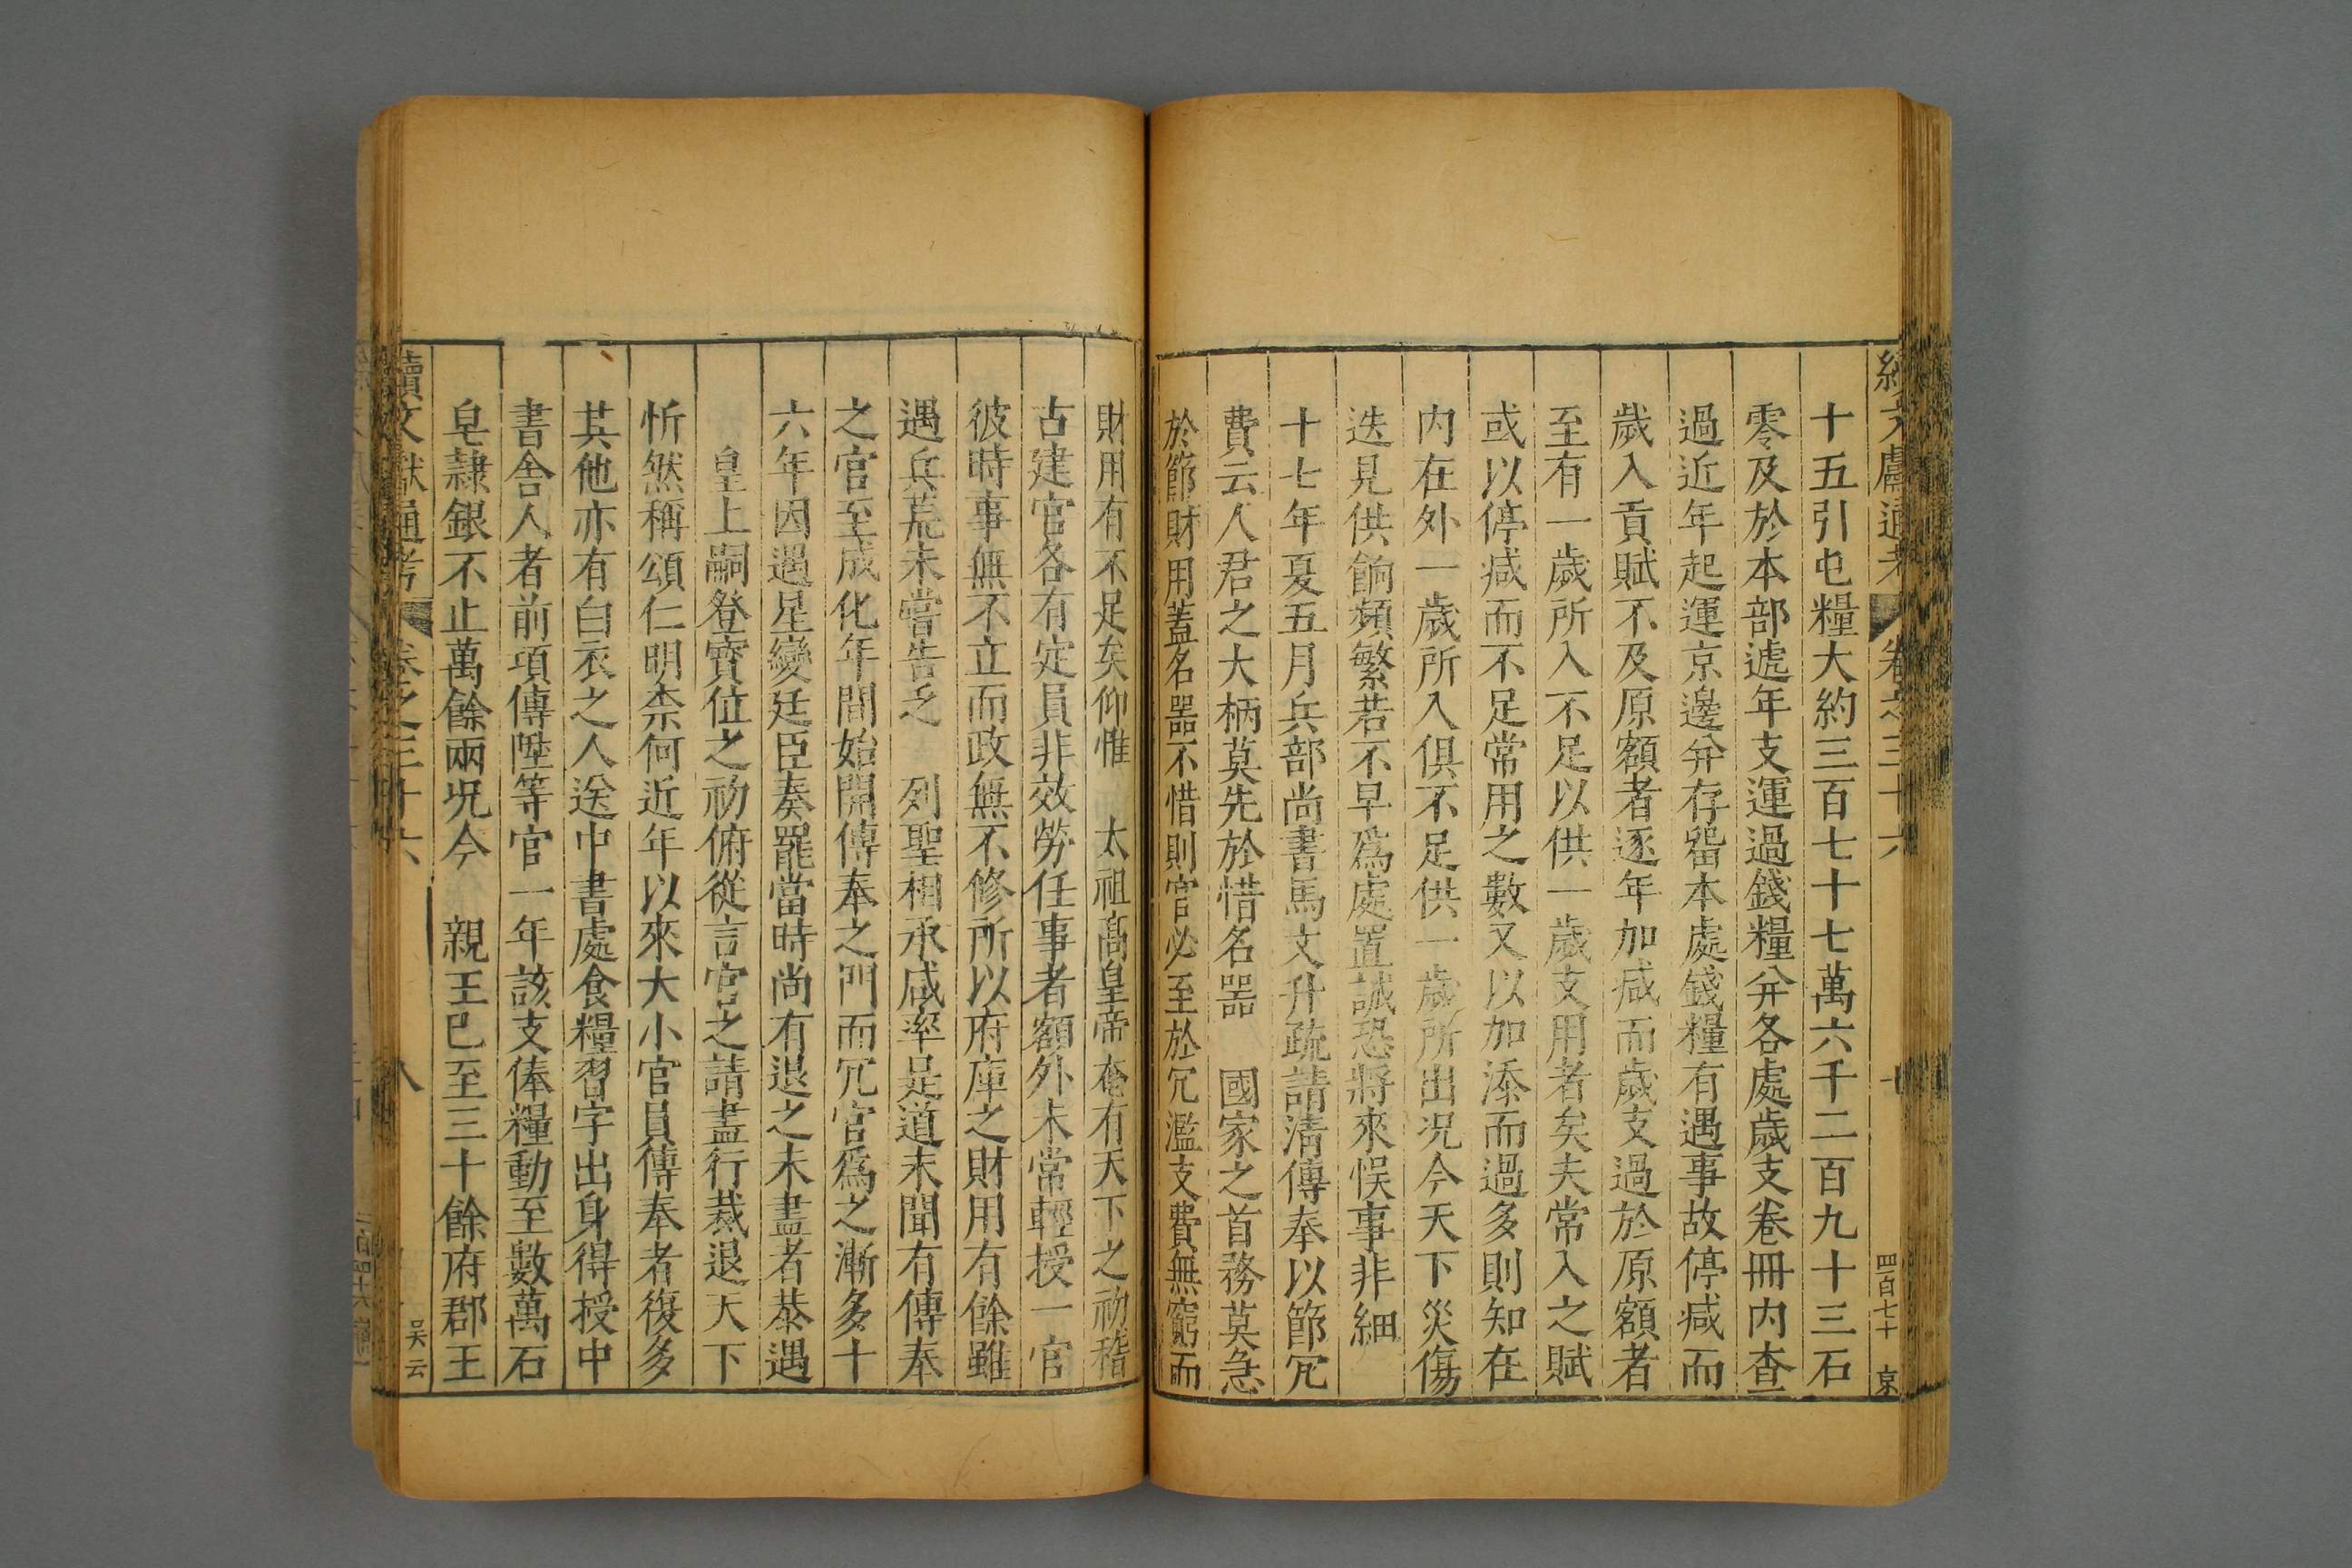 續文獻通考 卷之三十六 七 四百七十 京
十五引屯糧大約三百七十七萬六千二百九十三石
零及於本部遞年支運過錢糧并各處歲支卷冊內查
過近年起運京邊并存畱本處錢糧有遇事故停減而
歲入貢賦不及原額者逐年加減而歲支過於原額者
至有一歲所入不足以供一歲支用者矣夫常入之賦
或以停減而不足常用之數又以加添而過多則知在
內在外一歲所入俱不足供一歲所出况今天下災傷
迭見供餉頻繁若不早爲處置誠恐將來悞事非細
十七年夏五月兵部尚書馬文升疏請清傳奉以節冗
費云人君之大柄莫先於惜名器 國家之首務莫急
於節財用蓋名器不惜則官必至於冗濫支費無窮而
財用有不足矣仰惟 太祖高皇帝奄有天下之初稽
古建官各有定員非效勞任事者額外未常輕授一官
彼時事無不立而政無不修所以府庫之財用有餘雖
遇兵荒未嘗告乏 列聖相承咸率是道未聞有傳奉
之官至成化年間始開傳奉之門而冗官爲之漸多十
六年因遇星變廷臣奏罷當時尚有退之未盡者恭遇
皇上嗣登寶位之初俯從言官之請盡行裁退天下
忻然稱頌仁明柰何近年以來大小官員傳奉者復多
其他亦有白衣之人送中書處食糧習字出身得授中
書舍人者前項傳陞等官一年該支俸糧動至數萬石
皂隷銀不止萬餘兩况今 親王已至三十餘府郡王
續文獻通考 卷之三十六 八 吴云